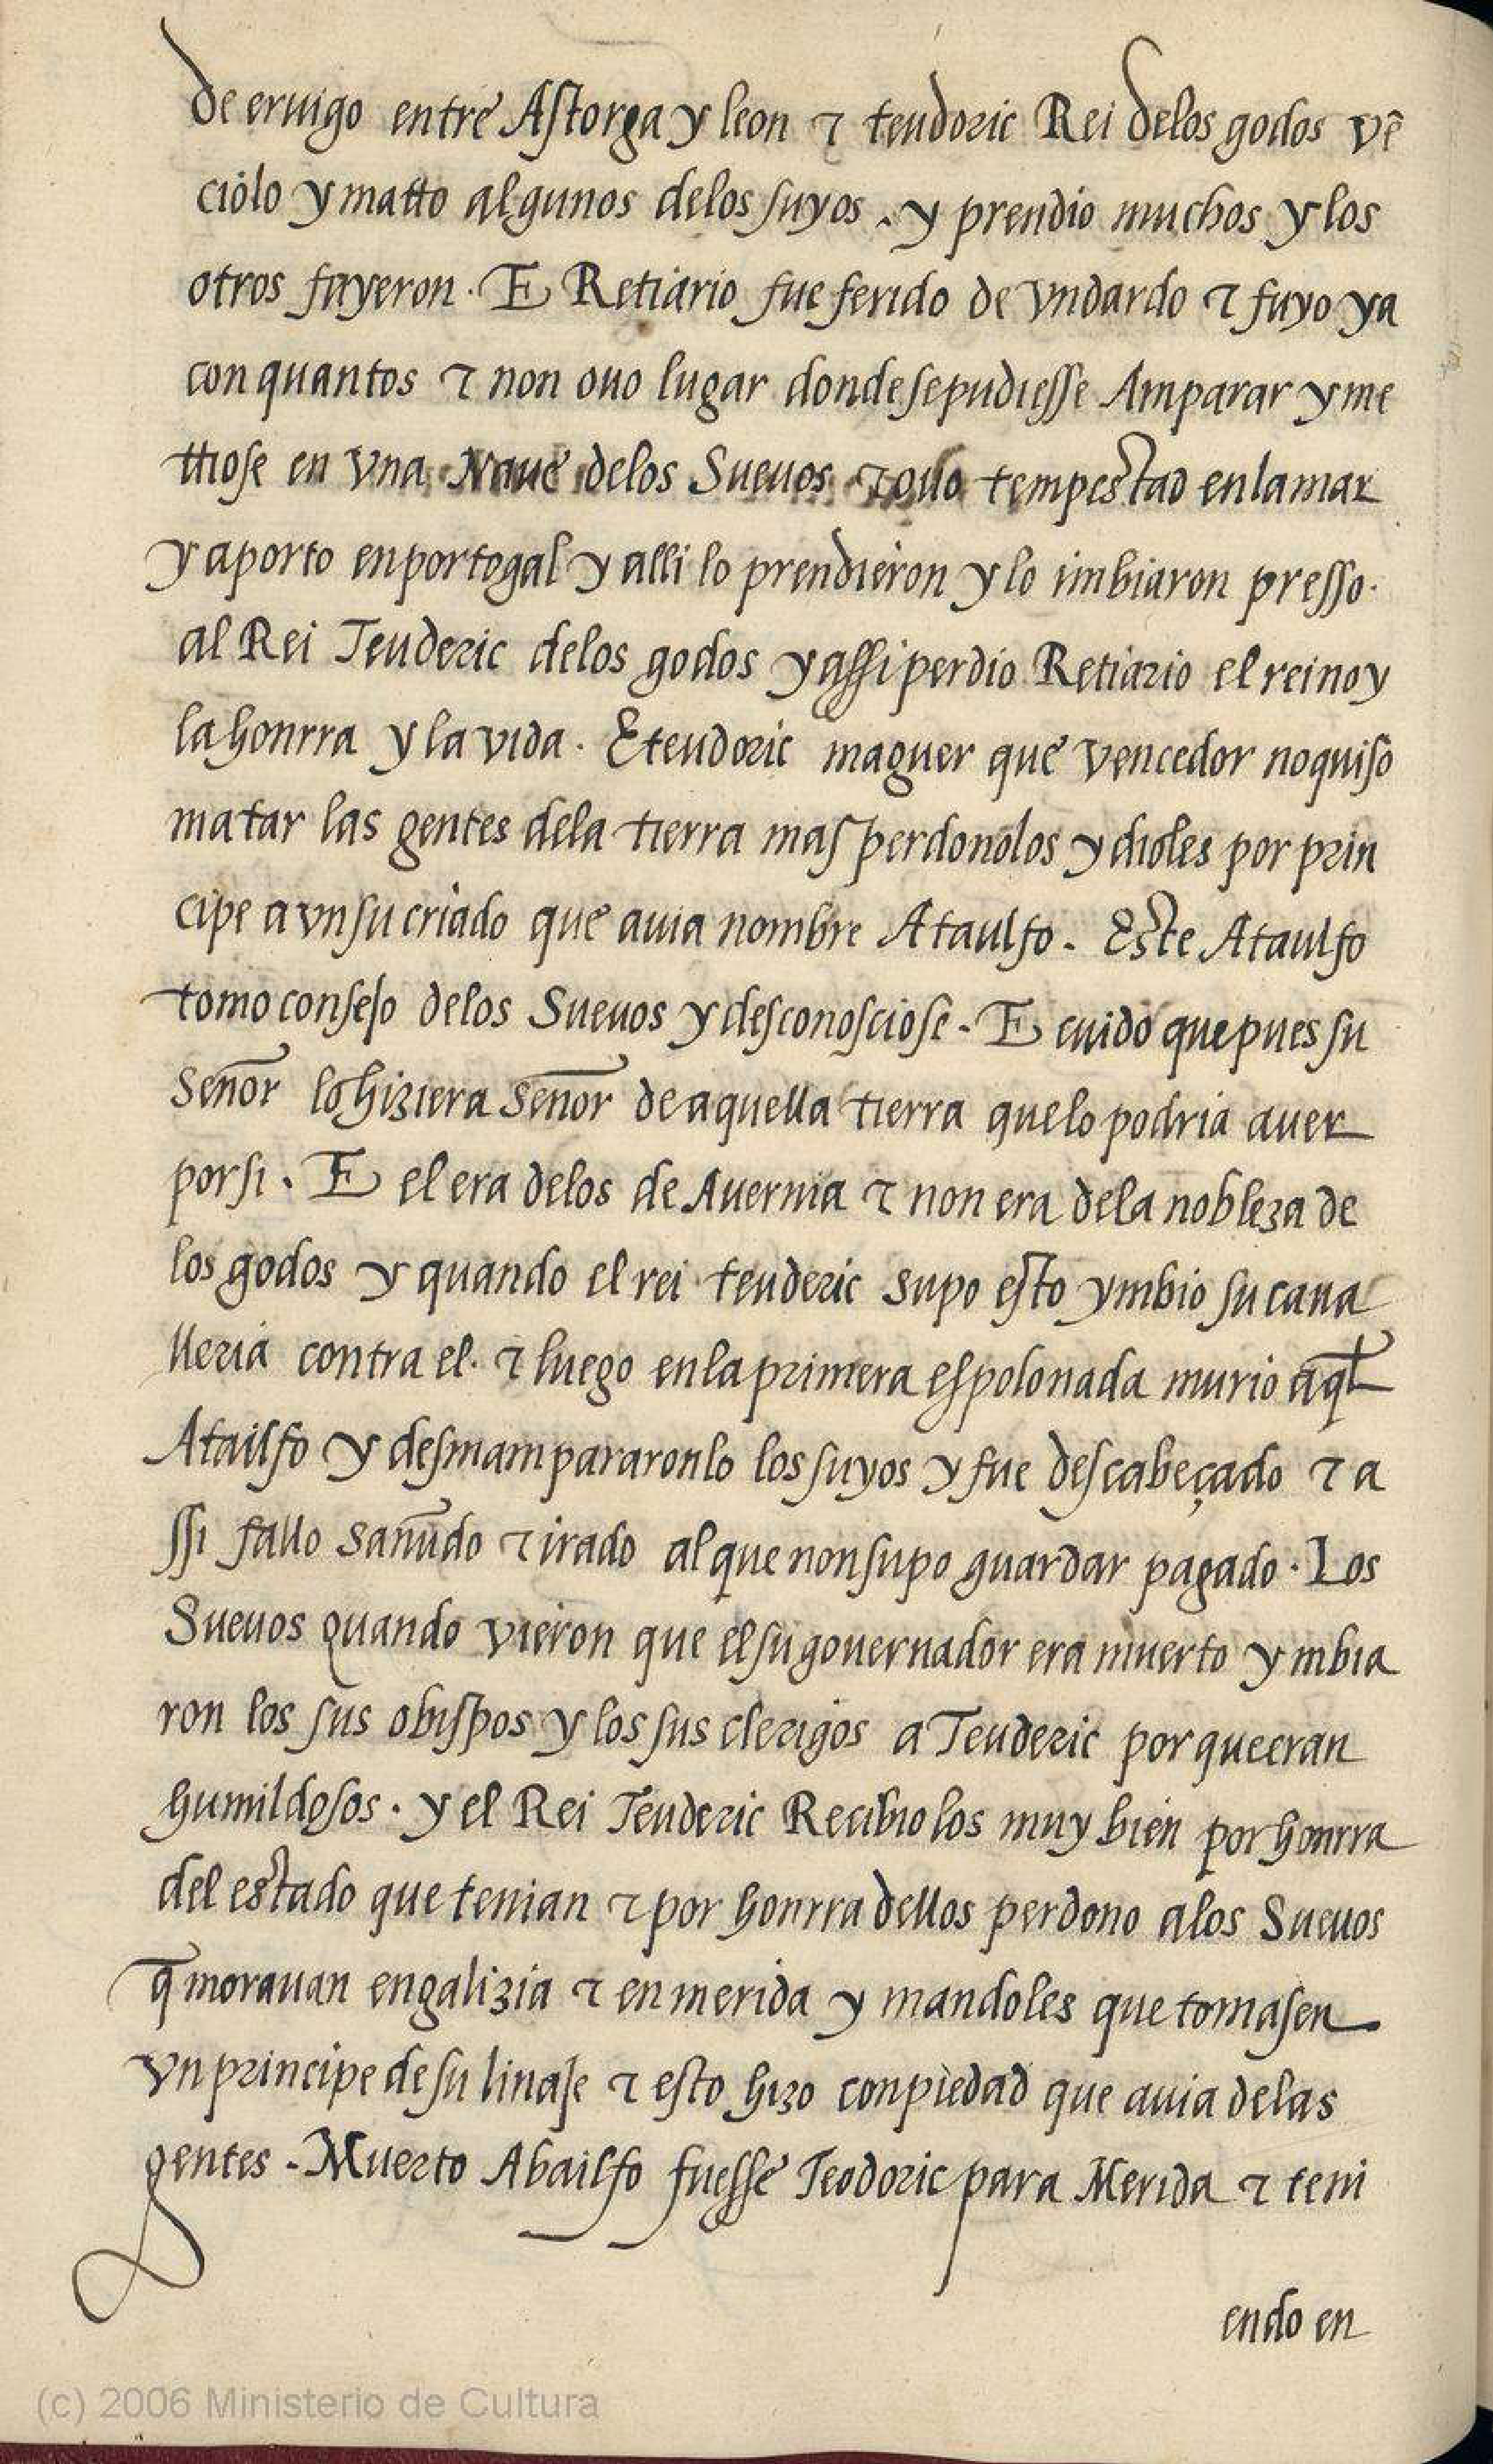 de eruigo entre Astorga y leon ⁊ teudoric Rei delos godos vẽ
ciòlo y matto algunos delos suyos . y prendio muchos y los
otros fuyeron . E Retiario fue ferido de vn dardo ⁊ fuyo ya
con quantos ⁊ non ouo lugar donde se pudiesse Amparar y me
ttiose en vna Naue delos Sueuos ⁊ ouo tempestad en la mar
y aporto en portogal y alli lo prendieron y lo imbiaron presso .
al Rei Teuderic delos godos y assi perdio Retiario el reino y
la honrra y la vida . E teudoric maguer que vencedor no quiso
matar las gentes dela tierra mas perdonolos y dioles por prin
cipe a vn su criado que auia nombre Ataulfo . Este Ataulfo
tomo consejo delos Sueuos y desconosciose . E cuido que pues su
Señor lo hiziera Señor de aquella tierra que lo podria auer
por si . E el era delos de Auernia ⁊ non era dela nobleza de
los godos y quando el rei teuderic supo esto ymbio su caua
lleria contra el . ⁊ luego en la primera espolonada murio aql̃
Atailfo y desmampararonlo los suyos y fue descabeçado ⁊ a
ssi fallo sañudo ⁊ irado al que non supo guardar pagado . Los
Sueuos quando vieron que el su gouernador era muerto ymbia
ron los sus obispos y los sus clerigos a Teuderic por que eran
humildosos . y el Rei Teuderic Recibio los muy bien por honrra
del estado que tenian ⁊ por honrra dellos perdono a los Sueuos
q̃ morauan en galizia ⁊ en merida y mandoles que tomasen
vn principe de su linaje ⁊ esto hizo con piedad que auia delas
gentes . Muerto Abailfo fuesse Teodoric para Merida ⁊ teni
endo en
(c) 2006 Ministerio de Cultura